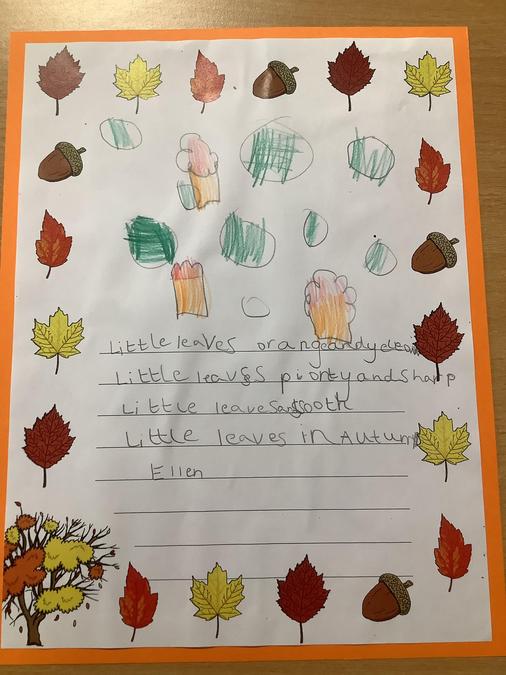 Little leaves orangeandyeleow
Little leaves piontyandsharp
Little leavesandsooth
Little leaves in Autumn
Ellen